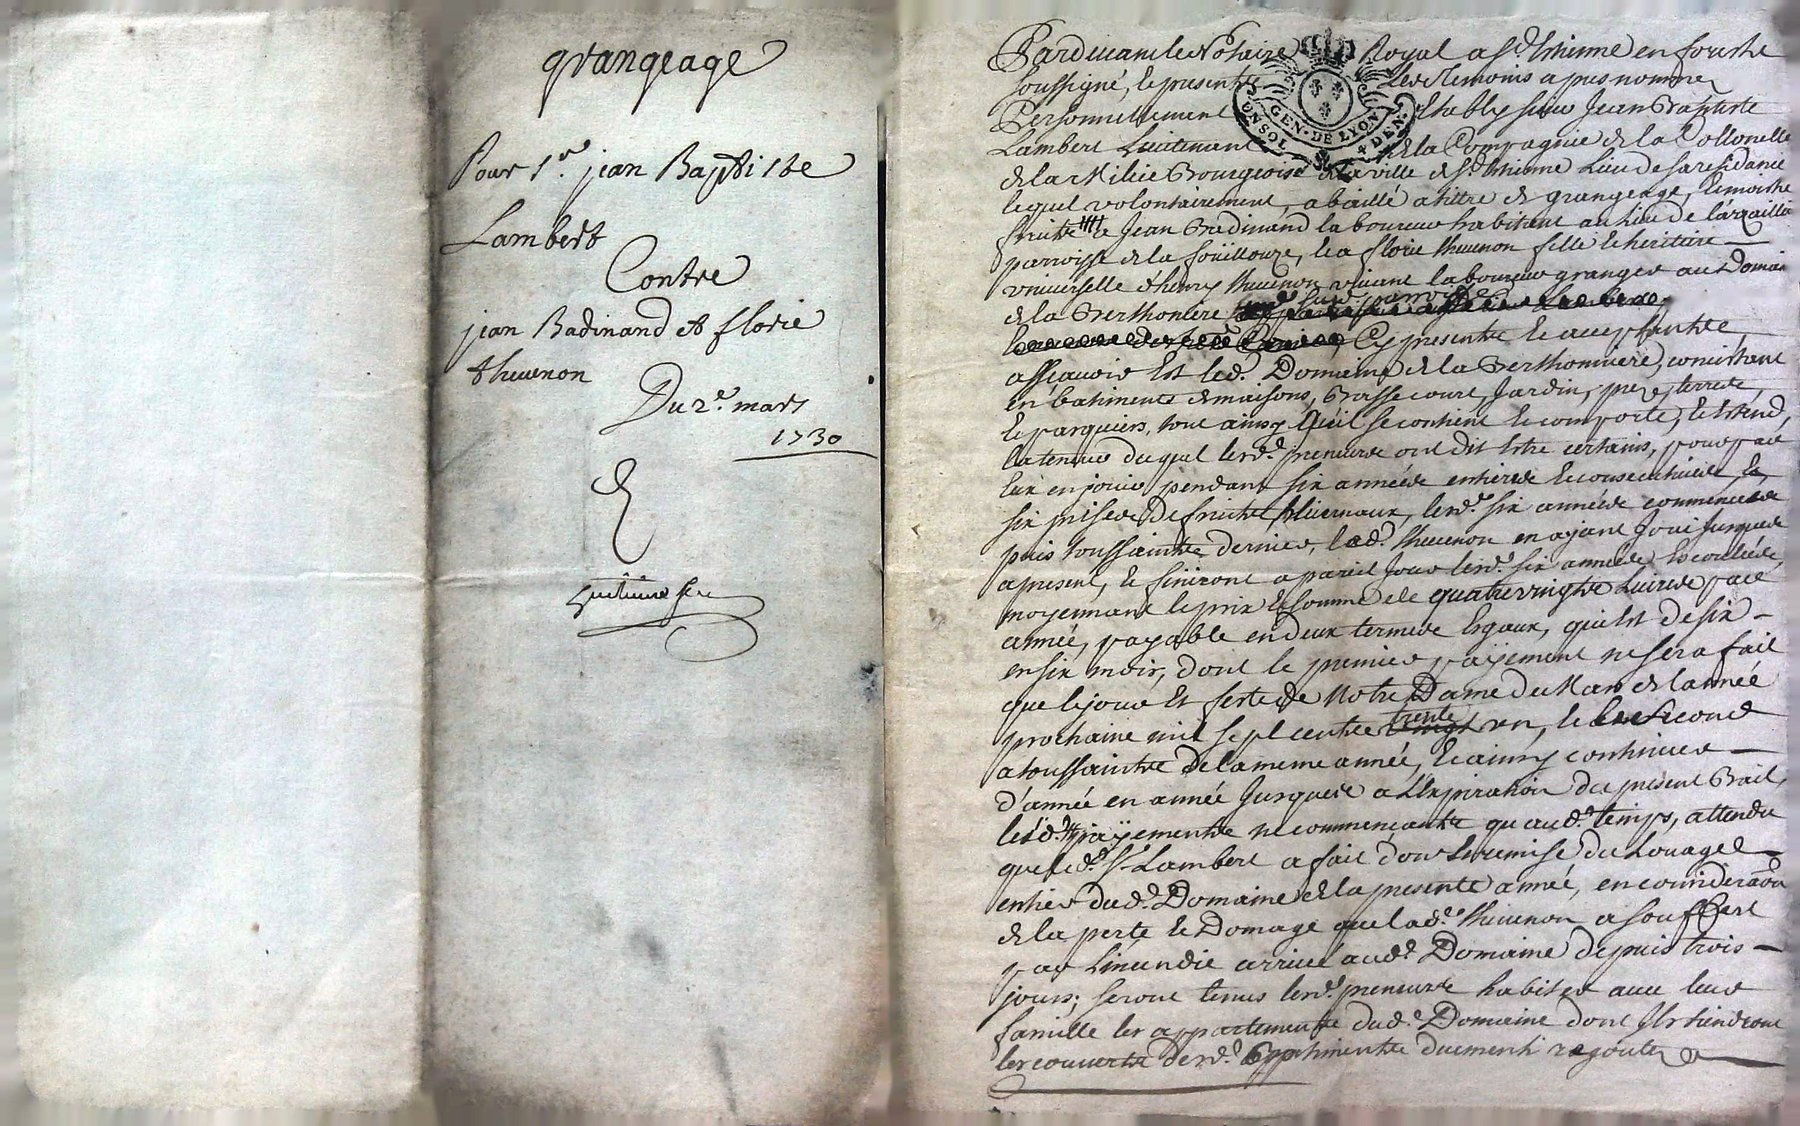 grangeage
Pour Sr. jean Baptiste
Lambert
Contre
jean Badinand et florie
thevenon
Du 2e. mars
1730
GEN. DE LYON
UN SOL 4 DEN.
Pardevant le Notaire Royal a St. Etienne en forestz
soussigné, et presents les temoins apres nommez
Personnellement Estably sieur Jean Baptiste
Lambert Lieutenant de la Compagnie de la Collonelle
de la Milice Bourgeoise de la ville de St. Etienne Lieu de sa residance
lequel volontairement, a baillé a tittre de grangeage, et moitié
fruits a Jean Badinand laboureur habitant au lieu de
parroisse de la foüillouze, et a florie thevenon fille et heritiere
universelle d'henry thevenon vivant laboureur granger au Domaine
de la Berthoniere
Cy presents et acceptants,
assçavoir Est led. Domaine de la Berthonniere, consistant
en batiments de maisons, Basse cour, Jardin, prez, terres,
et pasquiers, tout ainsy qu'il se contient et comporte, et s'étend,
la teneur duquel lesd. preneurs ont dit Estre certains, pour par
Eux en jouir pendant six années entieres et consecutives, et
six prises de fruits hivernaux, lesd. six années commencées
puis toussaints dernier, lad. thevenon en ayant Joui Jusques
a present, et finiront a pareil Jour lesd. six années Ecoulées,
moyennant le prix et somme de quatrevingts Livres par
année, payable en deux termes Egaux, qui Est de six
en six mois, dont le premier payement ne sera fait
que le jour et feste de Notre Dame de Mars de l'année
prochaine mil sept cents trente un, et le second
a toussaints de la meme année, et ainsy continuer
d'année en année Jusques a L'Expiration du present Bail,
lesd. payements ne commencants qu'aud. temps, attendu
que led. Sr. Lambert a fait don et remise du Louage
entier dud. Domaine de la presente année, en consideraon
de la perte et Domage que lad. thevenon a souffert
par L'incendie arrivé aud. Domaine depuis trois
jours; seront tenus lesd. preneurs habiter avec leur
famille les appartements dud. Domaine dont Ils tiendront
les couverts desd. Appartements duement regoutez